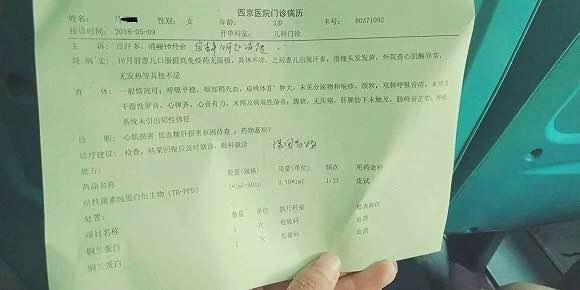 西京医院门诊病历
姓名： 性别： 女 年龄： 3岁 卡号： 80371092
接诊时间：2018-05-09 开单科室：儿科门诊
主 诉：出汗多，消瘦10月余
现 病 史：10月前患儿口服提高免疫药 具体不详，之后患儿出现汗多，消瘦头发发黄，外院查心肌酶异常，
无发热等其他不适
查 体：一般情况可，呼吸平稳，咽部稍充血，扁桃体II°肿大，未见分泌物和疱疹，颈软，双肺呼吸音清，未闻及
干湿性罗音，心律齐，心音有力，未闻及病理性杂音；腹软，无压痛，肝脾肋下未触及，肠鸣音正常，神经
系统未引出阳性体征
诊 断：心肌损害 低血糖肝损害原因待查：药物蓄积？
诊疗建议：检查，结果回报后及时就诊，眼科就诊
处方：
药品名称 数量(规格) 用量(单位) 频次 用药途径
结核菌素纯蛋白衍生物（TB-PPD） 皮试
处置：
项目名称 数量 单位 执行科室 检查部位
铜兰蛋白 1 次 检验科 血清
铜兰蛋白 1 次 检验科 血清